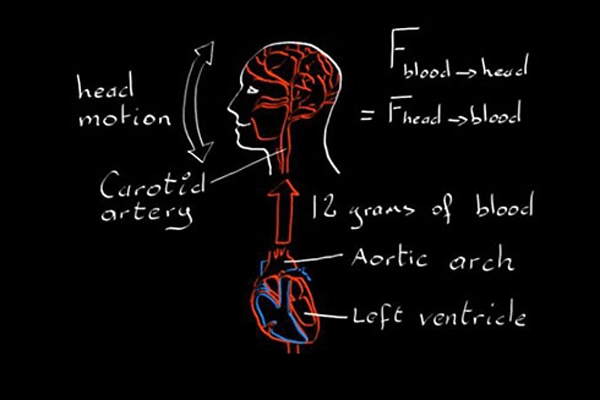 head
motion
F blood → head
= F head → blood
Carotid
artery
12 grams of blood
Aortic arch
Left ventricle